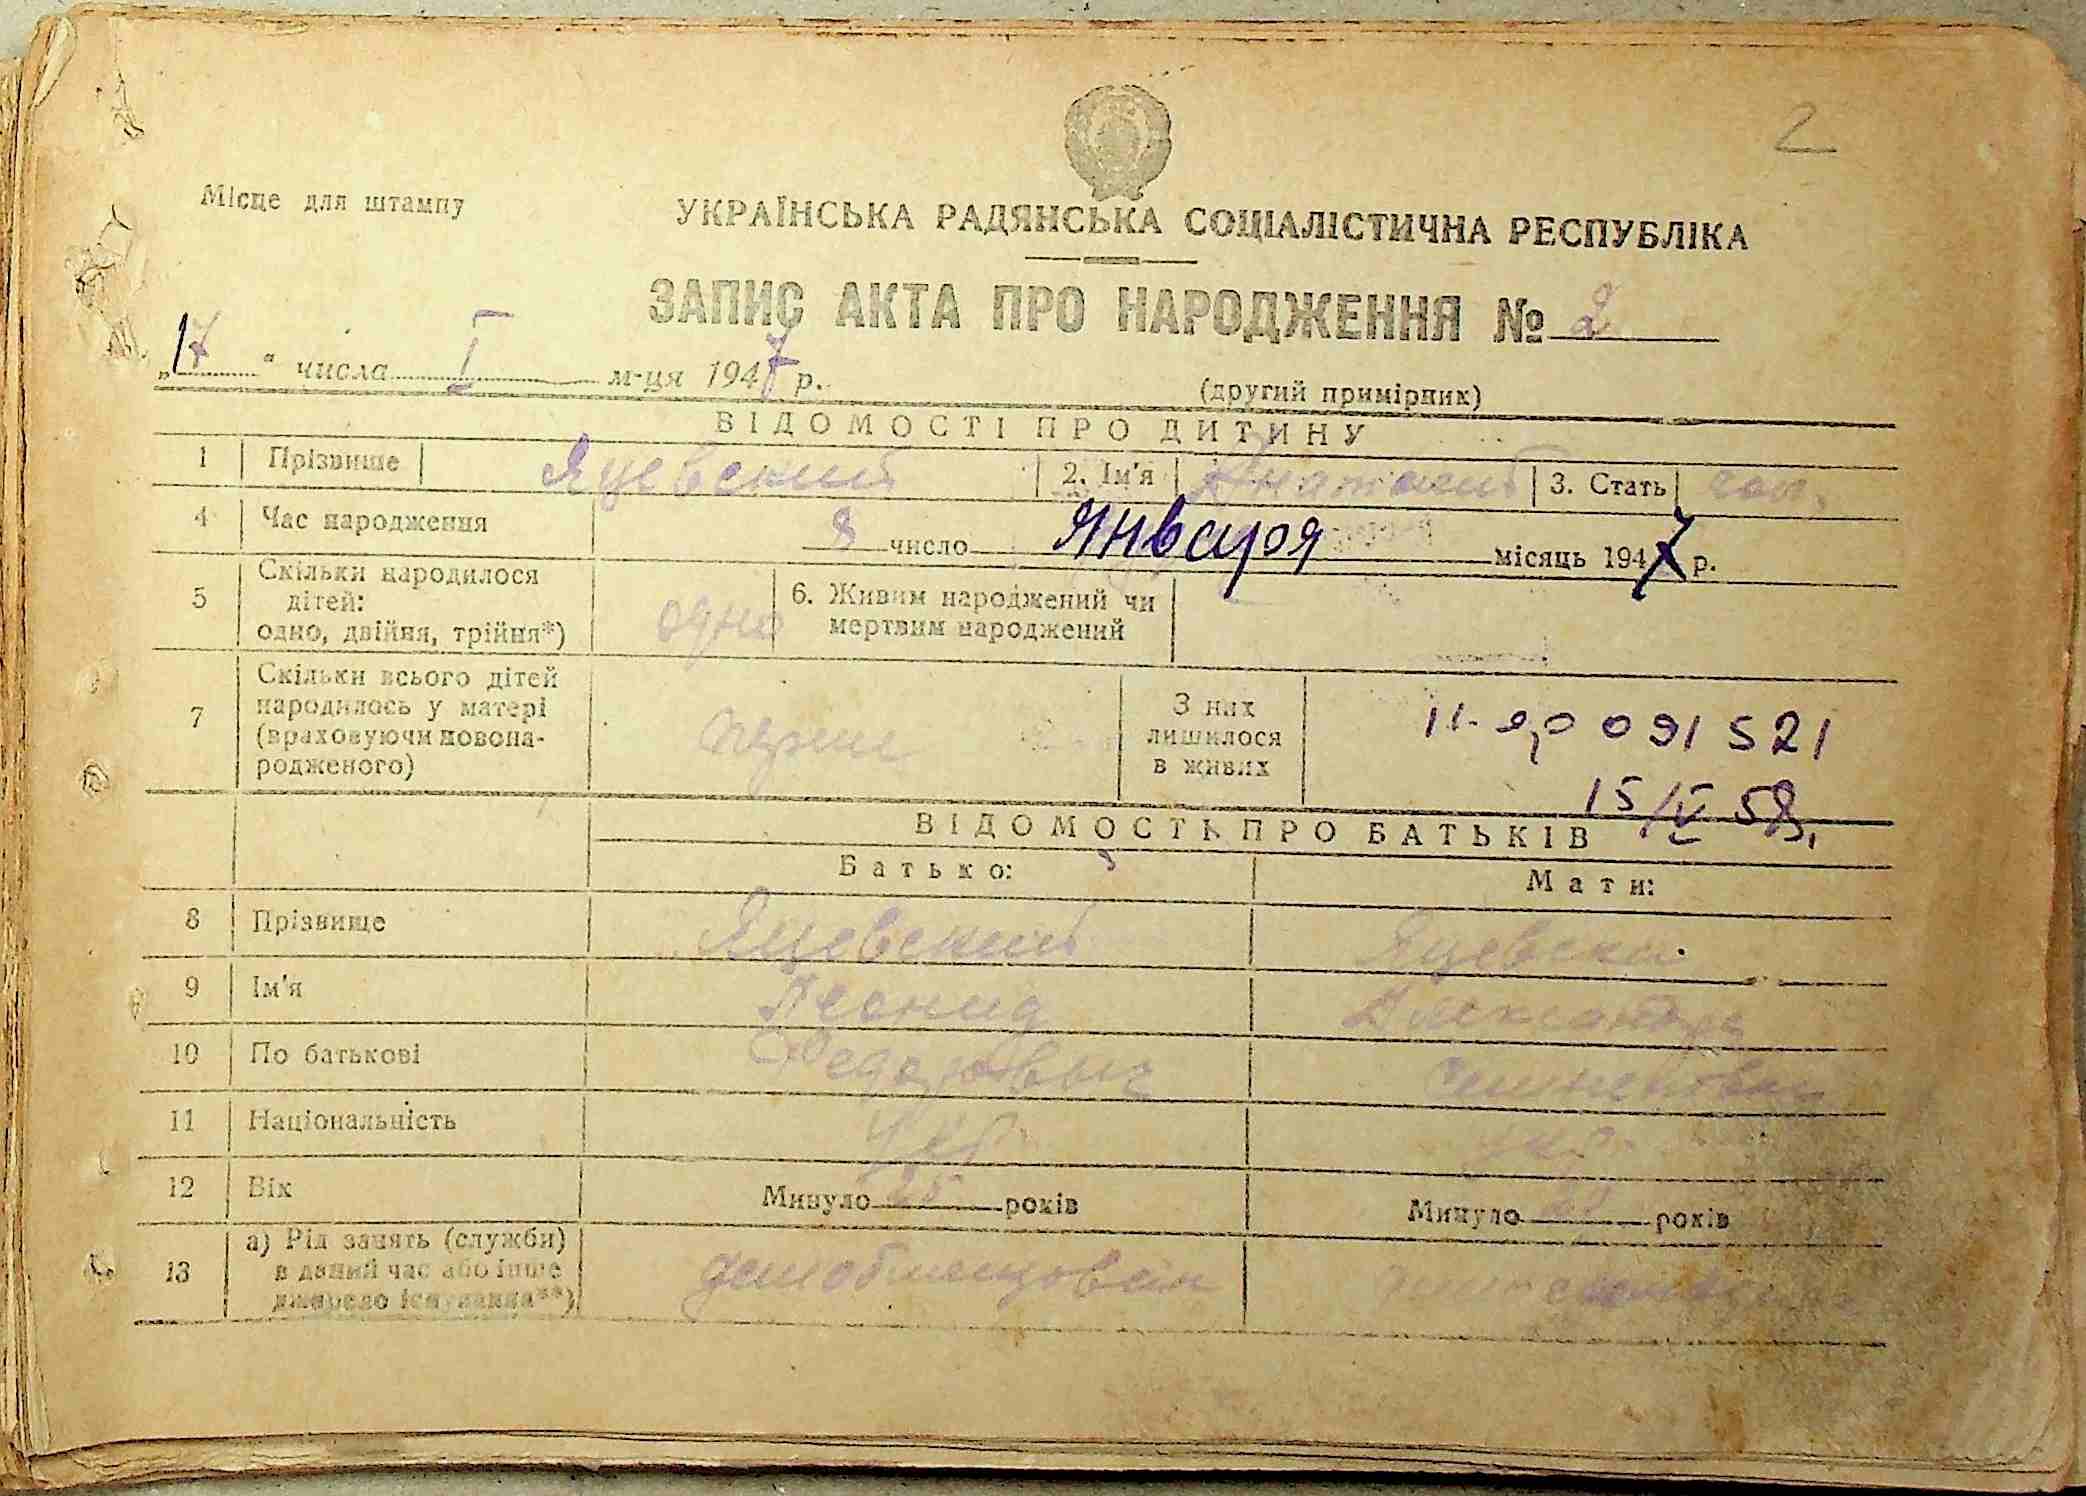 2
Місце для штампу
УКРАЇНСЬКА РАДЯНСЬКА СОЦІАЛІСТИЧНА РЕСПУБЛІКА
ЗАПИС АКТА ПРО НАРОДЖЕННЯ № 2
„17“ числа I м-ця 1947 р.
(другий примірник)
ВІДОМОСТІ ПРО ДИТИНУ
1 Прізвище Яцевский 2. Ім'я Анатолий 3. Стать чол.
4 Час народження 8 число Января місяць 1947 р.
5 Скільки народилося дітей: одно, двійня, трійня*) одно 6. Живим народжений чи мертвим народжений
7 Скільки всього дітей народилось у матері (враховуючи новонародженого) перше З них лишилося в живих
091521
15/IV 58
ВІДОМОСТІ ПРО БАТЬКІВ
Батько: Мати:
8 Прізвище Яцевский Яцевска
9 Ім'я Леонид Александра
10 По батькові Федоровыч
11 Національність укр. укр.
12 Вік Минуло 25 років Минуло років
13 а) Рід занять (служби) в даний час або інше джерело існування**)